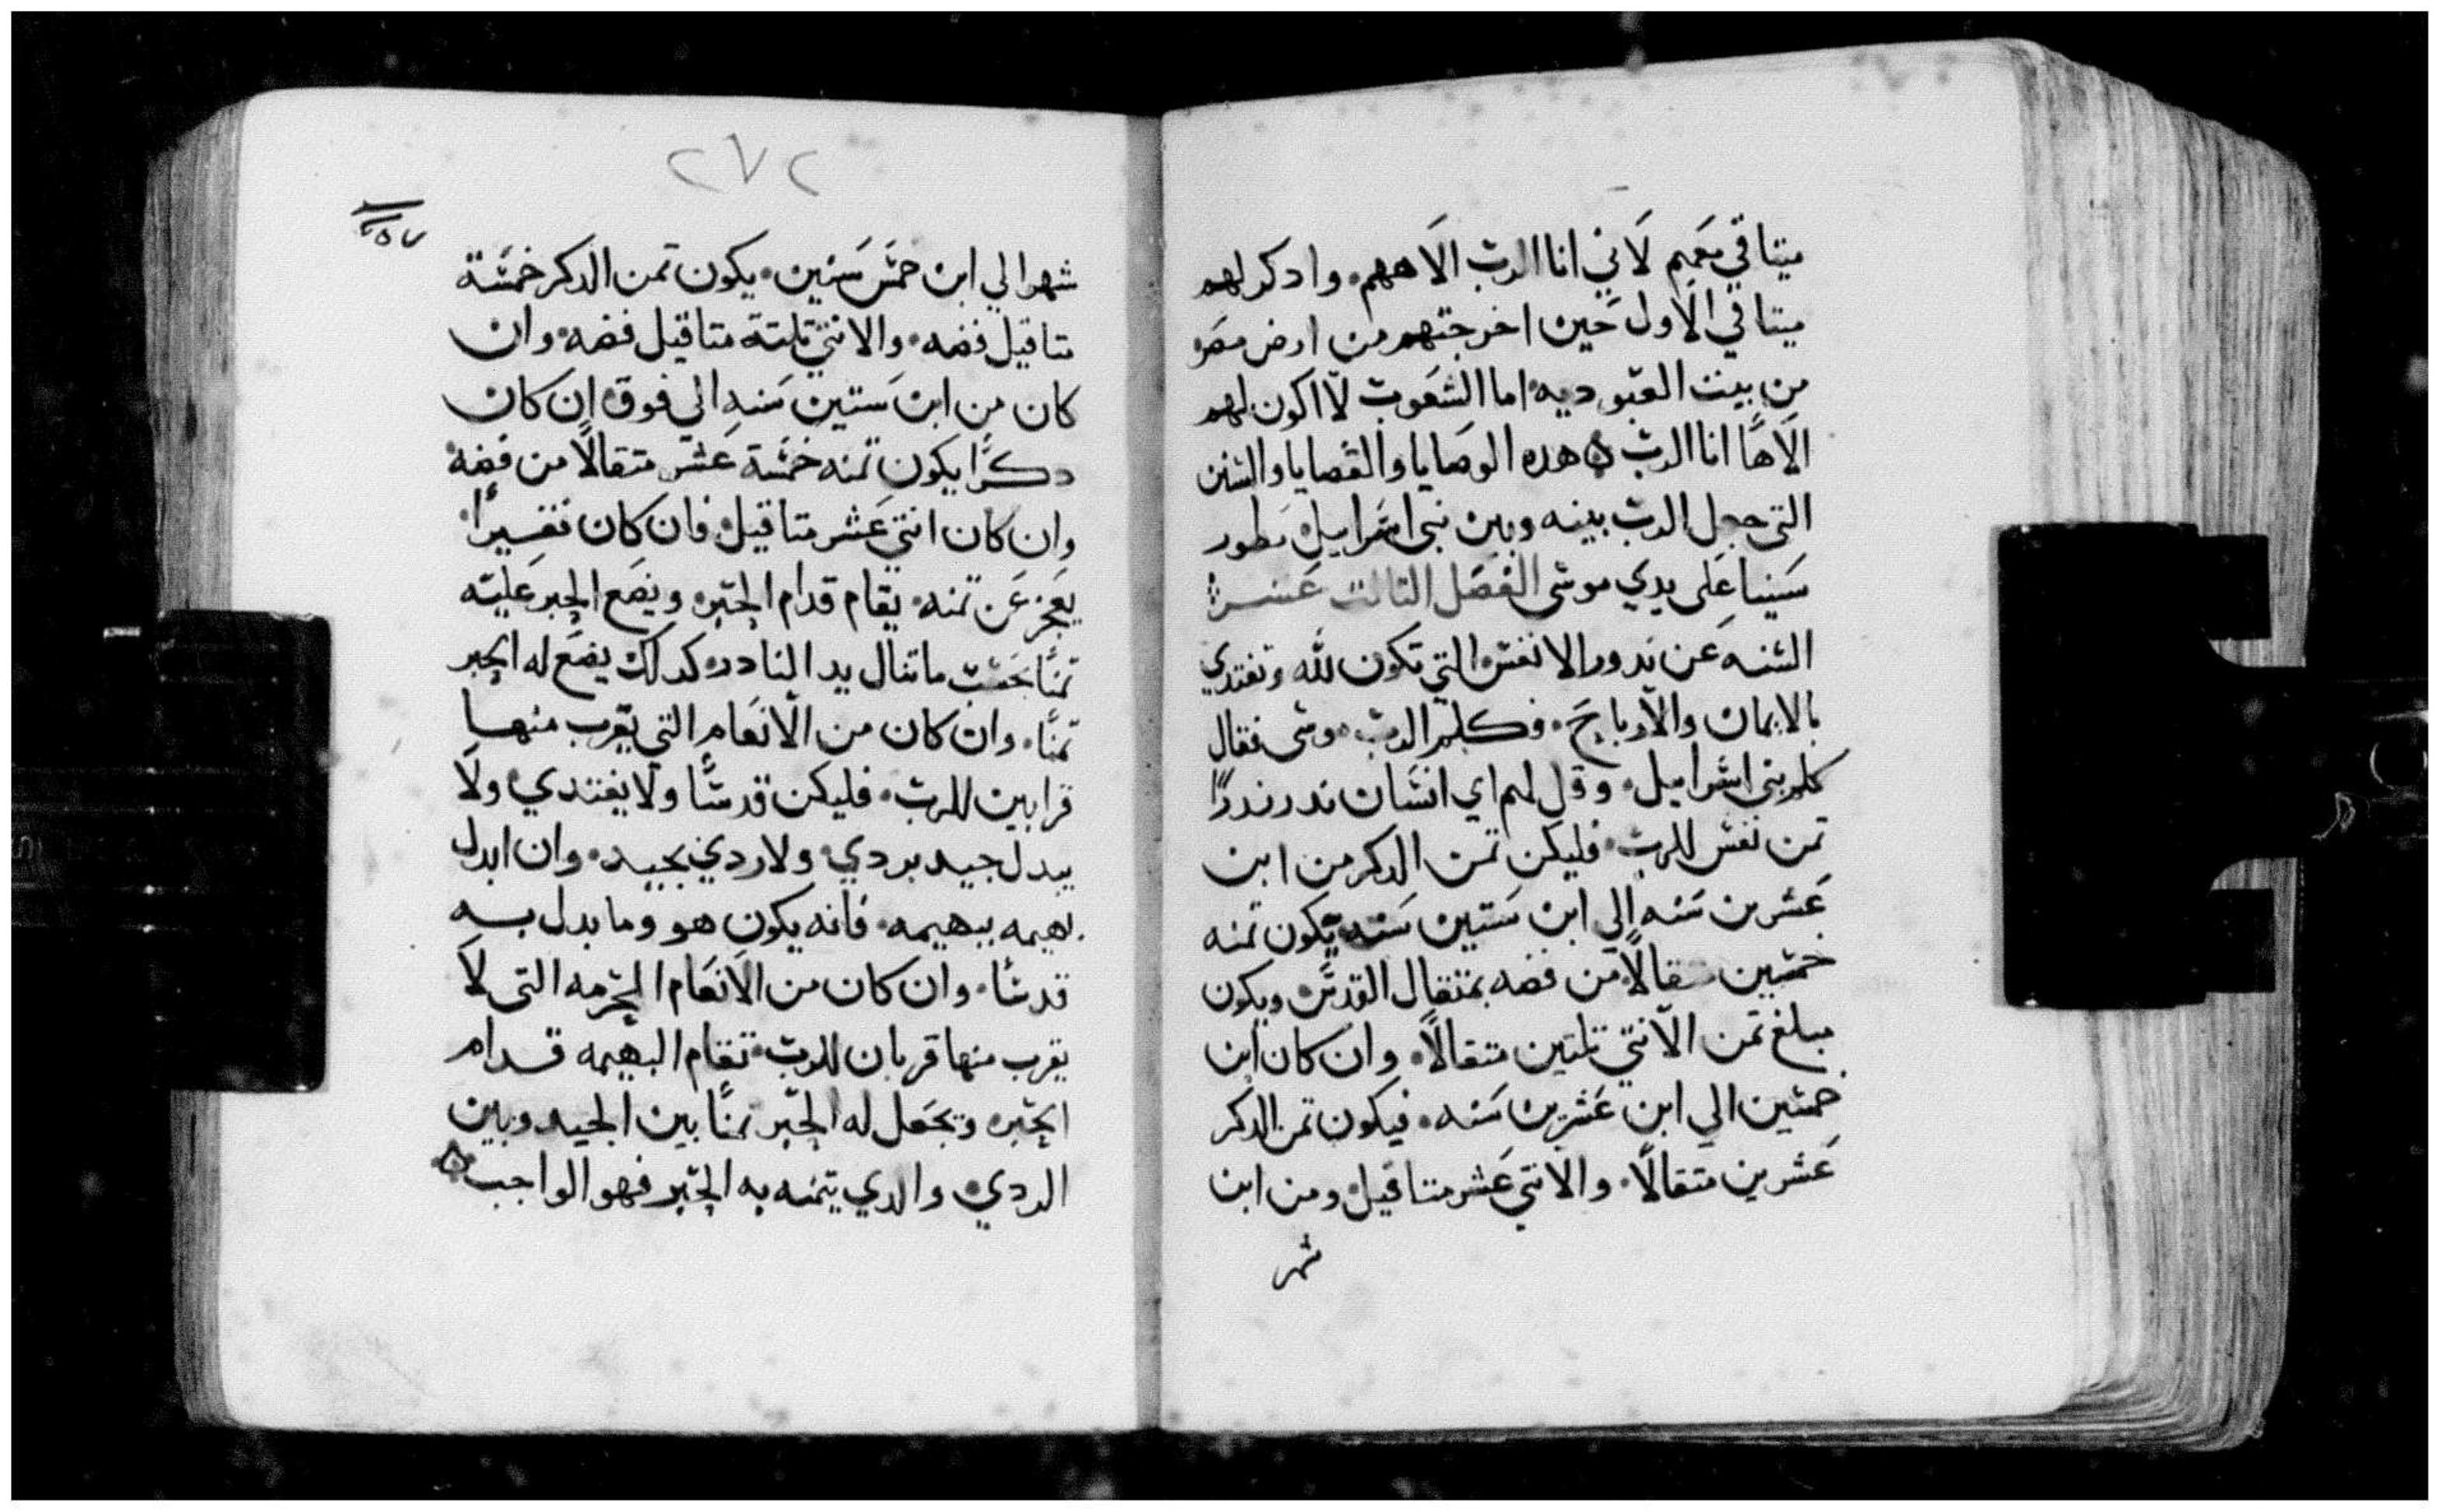 ميتاقي معهم لاني انا الرب الاههم. وادكر لهم
ميتاقي الاول حين اخرجتهم من ارض مصر
من بيت العبوديه. اما الشعوب لا اكون لهم
الاهًا انا الرب ه هده الوصايا والقضايا والسنن
التى جعل الرب بينه وبين بني اسراييل بطور
سينا على يدي موسى الفصل التالت عشر
السنه عن ندور الانفس التي تكون لله وتفتدي
بالايمان والارباح. وكلم الرب موسى فقال
كلم بني اسراييل. وقل لهم اي انسان ندر ندرًا
تمن نفس للرب. فليكن تمن الدكر من ابن
عشرين سنه الي ابن ستين سنه يكون تمنه
خمسين متقالًا من فضه بمتقال القدس ويكون
مبلغ تمن الانتي تلتين متقالًا. وان كان ابن
خمسين الي ابن عشرين سنه. فيكون تمن الدكر
عشرين متقالًا. والانتي عشر متاقيل ومن ابن
شهر
٢٧٢
٢٥٧
شهر الي ابن خمس سنين. يكون تمن الدكر خمسة
متاقيل فضه. والانتي تلتة متاقيل فضه. وان
كان من ابن ستين سنه الي فوق ان كان
دكرًا يكون تمنه خمسة عشر متقالًا من فضه
وان كان انتي عشر متاقيل. فان كان فقيرًا
يعجز عن تمنه. يقام قدام الحبر. ويضع الحبر عليه
تمنًا بحسب ما تنال يد النادر. كدلك يضع له الحبر
تمنًا. وان كان من الانعام التي يقرب منها
قرابين للرب. فليكن قدسًا ولا يفتدي ولا
يبدل جيد بردي ولا ردي بجيد. وان ابدل
بهيمه ببهيمه. فانه يكون هو وما بدل به
قدسًا. وان كان من الانعام المحرمه التى لا
يقرب منها قربان للرب. تقام البهيمه قدام
الحبر. ويجعل له الحبر تمنًا بين الجيد وبين
الردي. والدي يتمنه به الحبر فهو الواجب ه